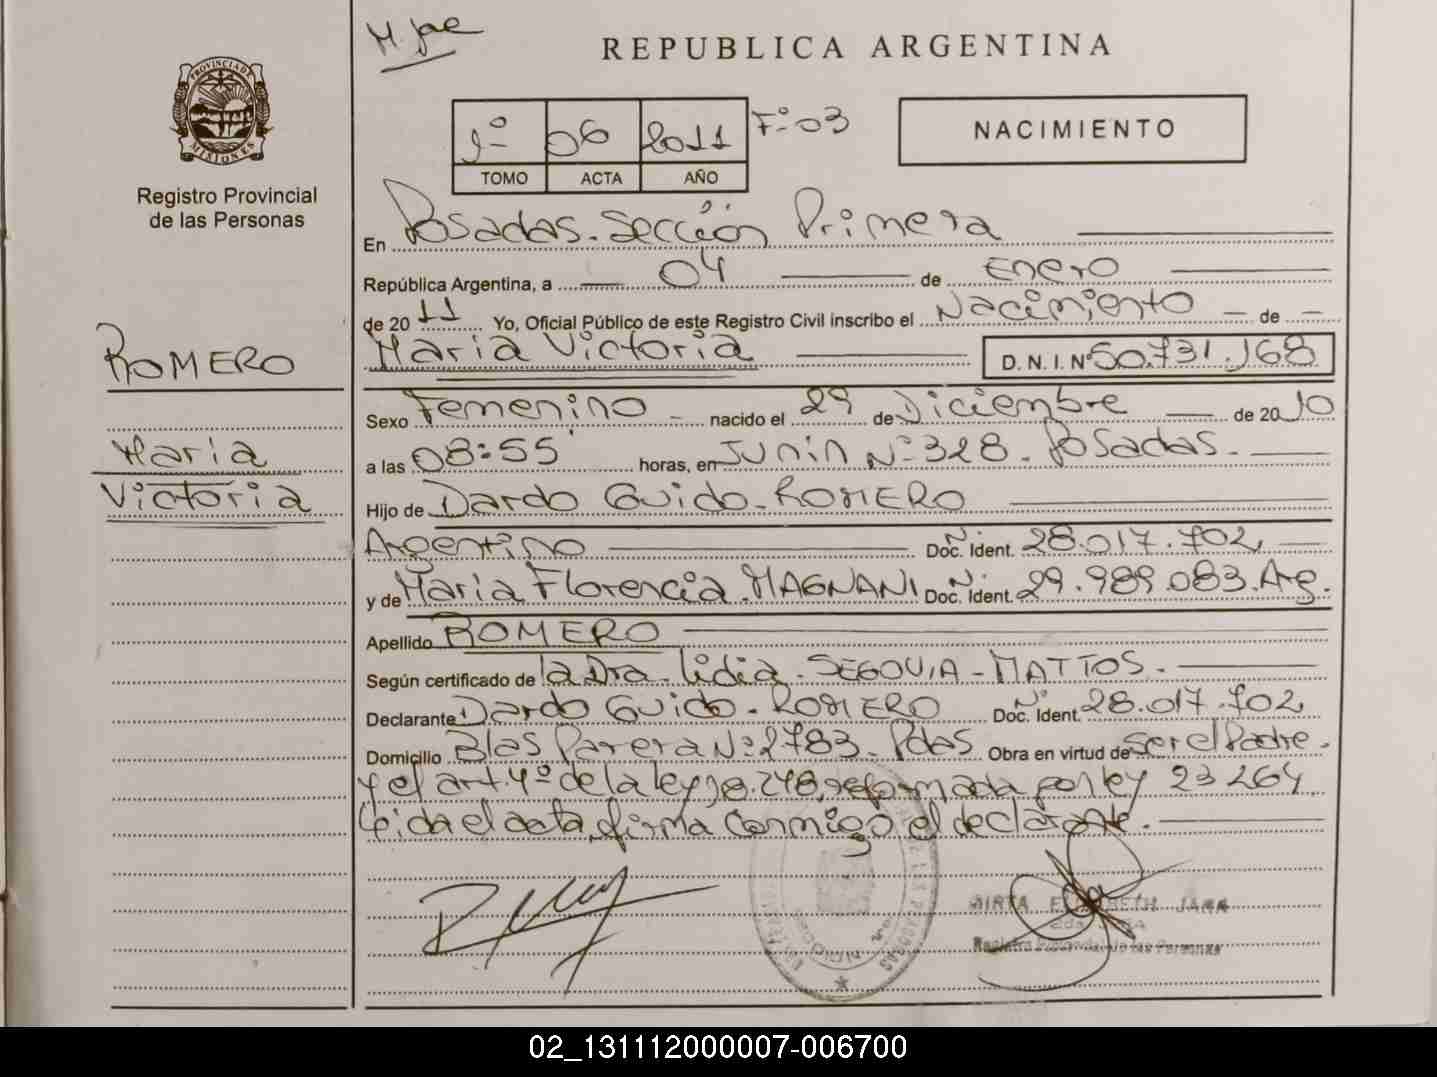 M jae
REPUBLICA ARGENTINA
PROVINCIA DE
MISIONES
Registro Provincial
de las Personas
1º 06 2011 Fº 03
TOMO ACTA AÑO
NACIMIENTO
En Posadas. Sección Primera
República Argentina, a 04 de Enero
de 2011 Yo, Oficial Público de este Registro Civil inscribo el Nacimiento de
Maria Victoria D. N. I. Nº 50.731.168
ROMERO
Maria
Victoria
Sexo Femenino nacido el 29 de Diciembre de 2010
a las 08:55 horas, en Junin Nº 328. Posadas.
Hijo de Dardo Guido. ROMERO
Argentino Doc. Ident. Nº 28.017.702
y de Maria Florencia. MAGNANI Doc. Ident. Nº 29.989.083. Arg.
Apellido ROMERO
Según certificado de la Dra. Lidia. SEGOVIA - MATTOS.
Declarante Dardo Guido. ROMERO Doc. Ident. Nº 28.017.702
Domicilio Blas Parera Nº 2783. Pdas Obra en virtud de ser el Padre.
y el art. 4º de la ley 18.248, reformada por ley 23264
Leida el acta, firma conmigo el declarante.
MIRTA ELIZABETH JARA
Registro Provincial de las Personas
02_131112000007-006700